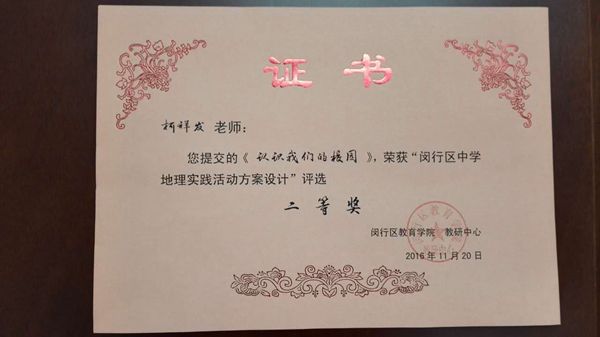 证书
柯祥发 老师：
您提交的《 认识我们的校园 》，荣获“闵行区中学
地理实践活动方案设计”评选
二等奖
闵行区教育学院 教研中心
2016 年 11 月 20 日